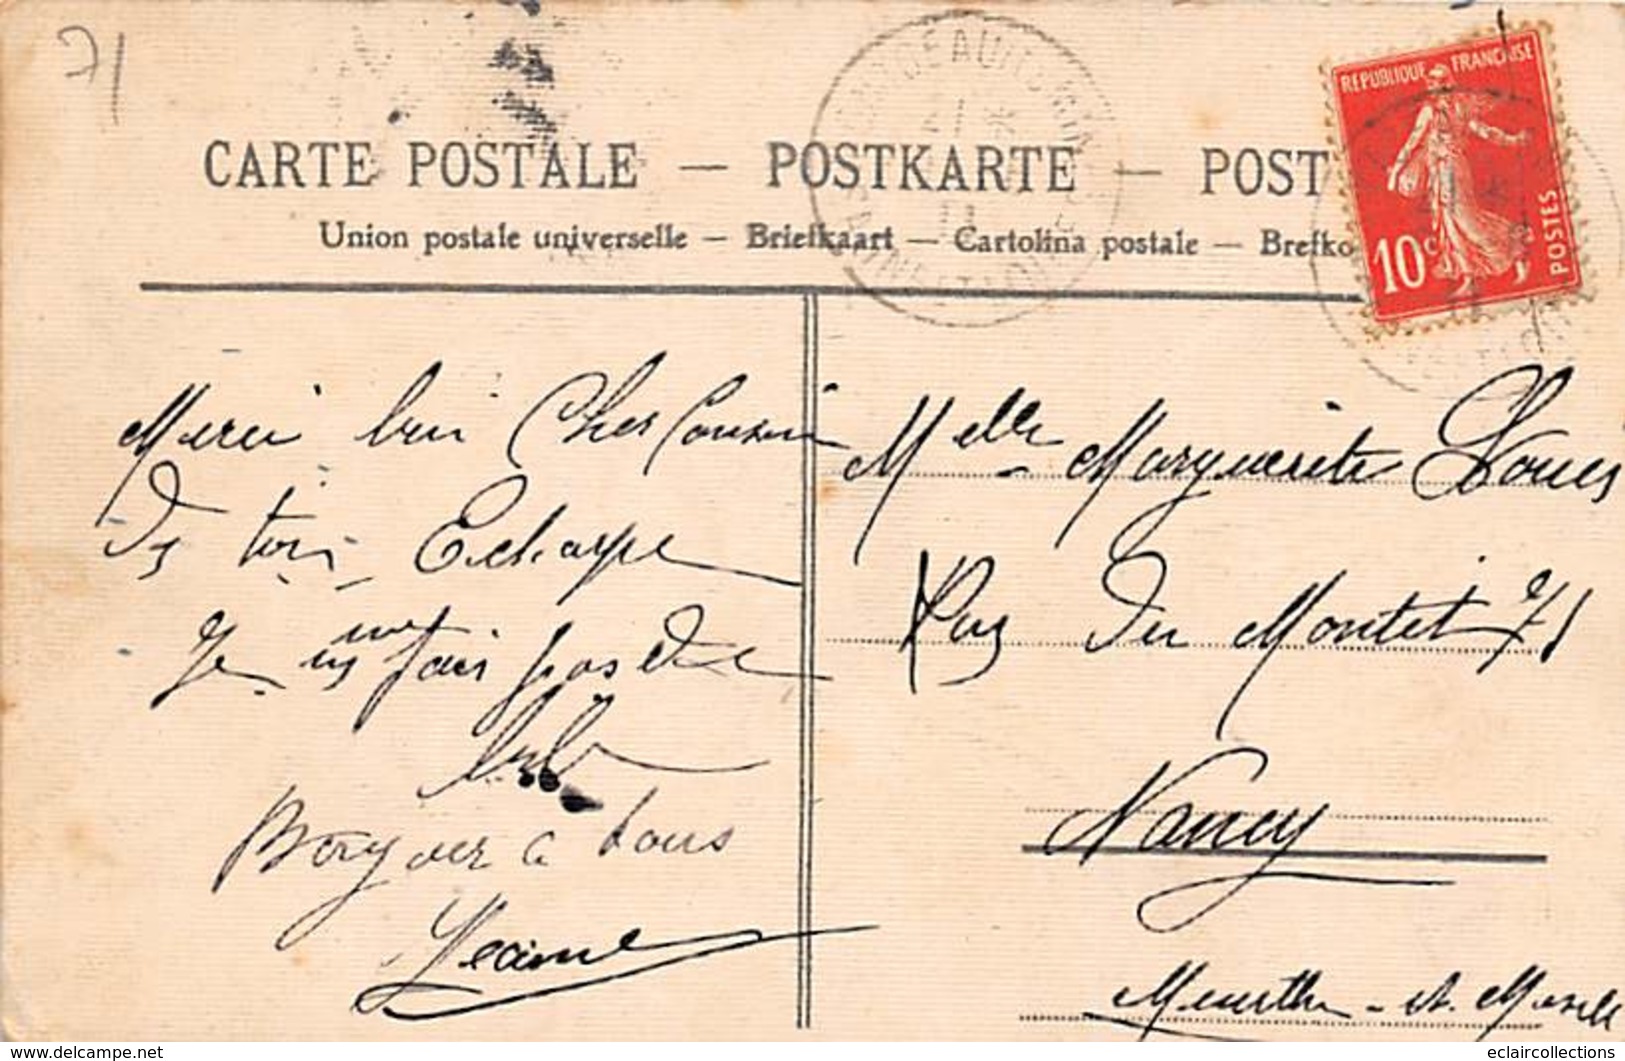 71
CARTE POSTALE — POSTKARTE — POST
Union postale universelle — Briefkaart — Cartolina postale — Brefko
REPUBLIQUE FRANÇAISE
10c
POSTES
11
Merci bui Cher Cousin
Ds toi Echarpe
Je me fais pas de
bile
Bonjour a tous
Jeanne
Melle Marguerite Loues
Rue Du Montet 71
Nancy
Meurthe-et-Moselle
eclaircollections